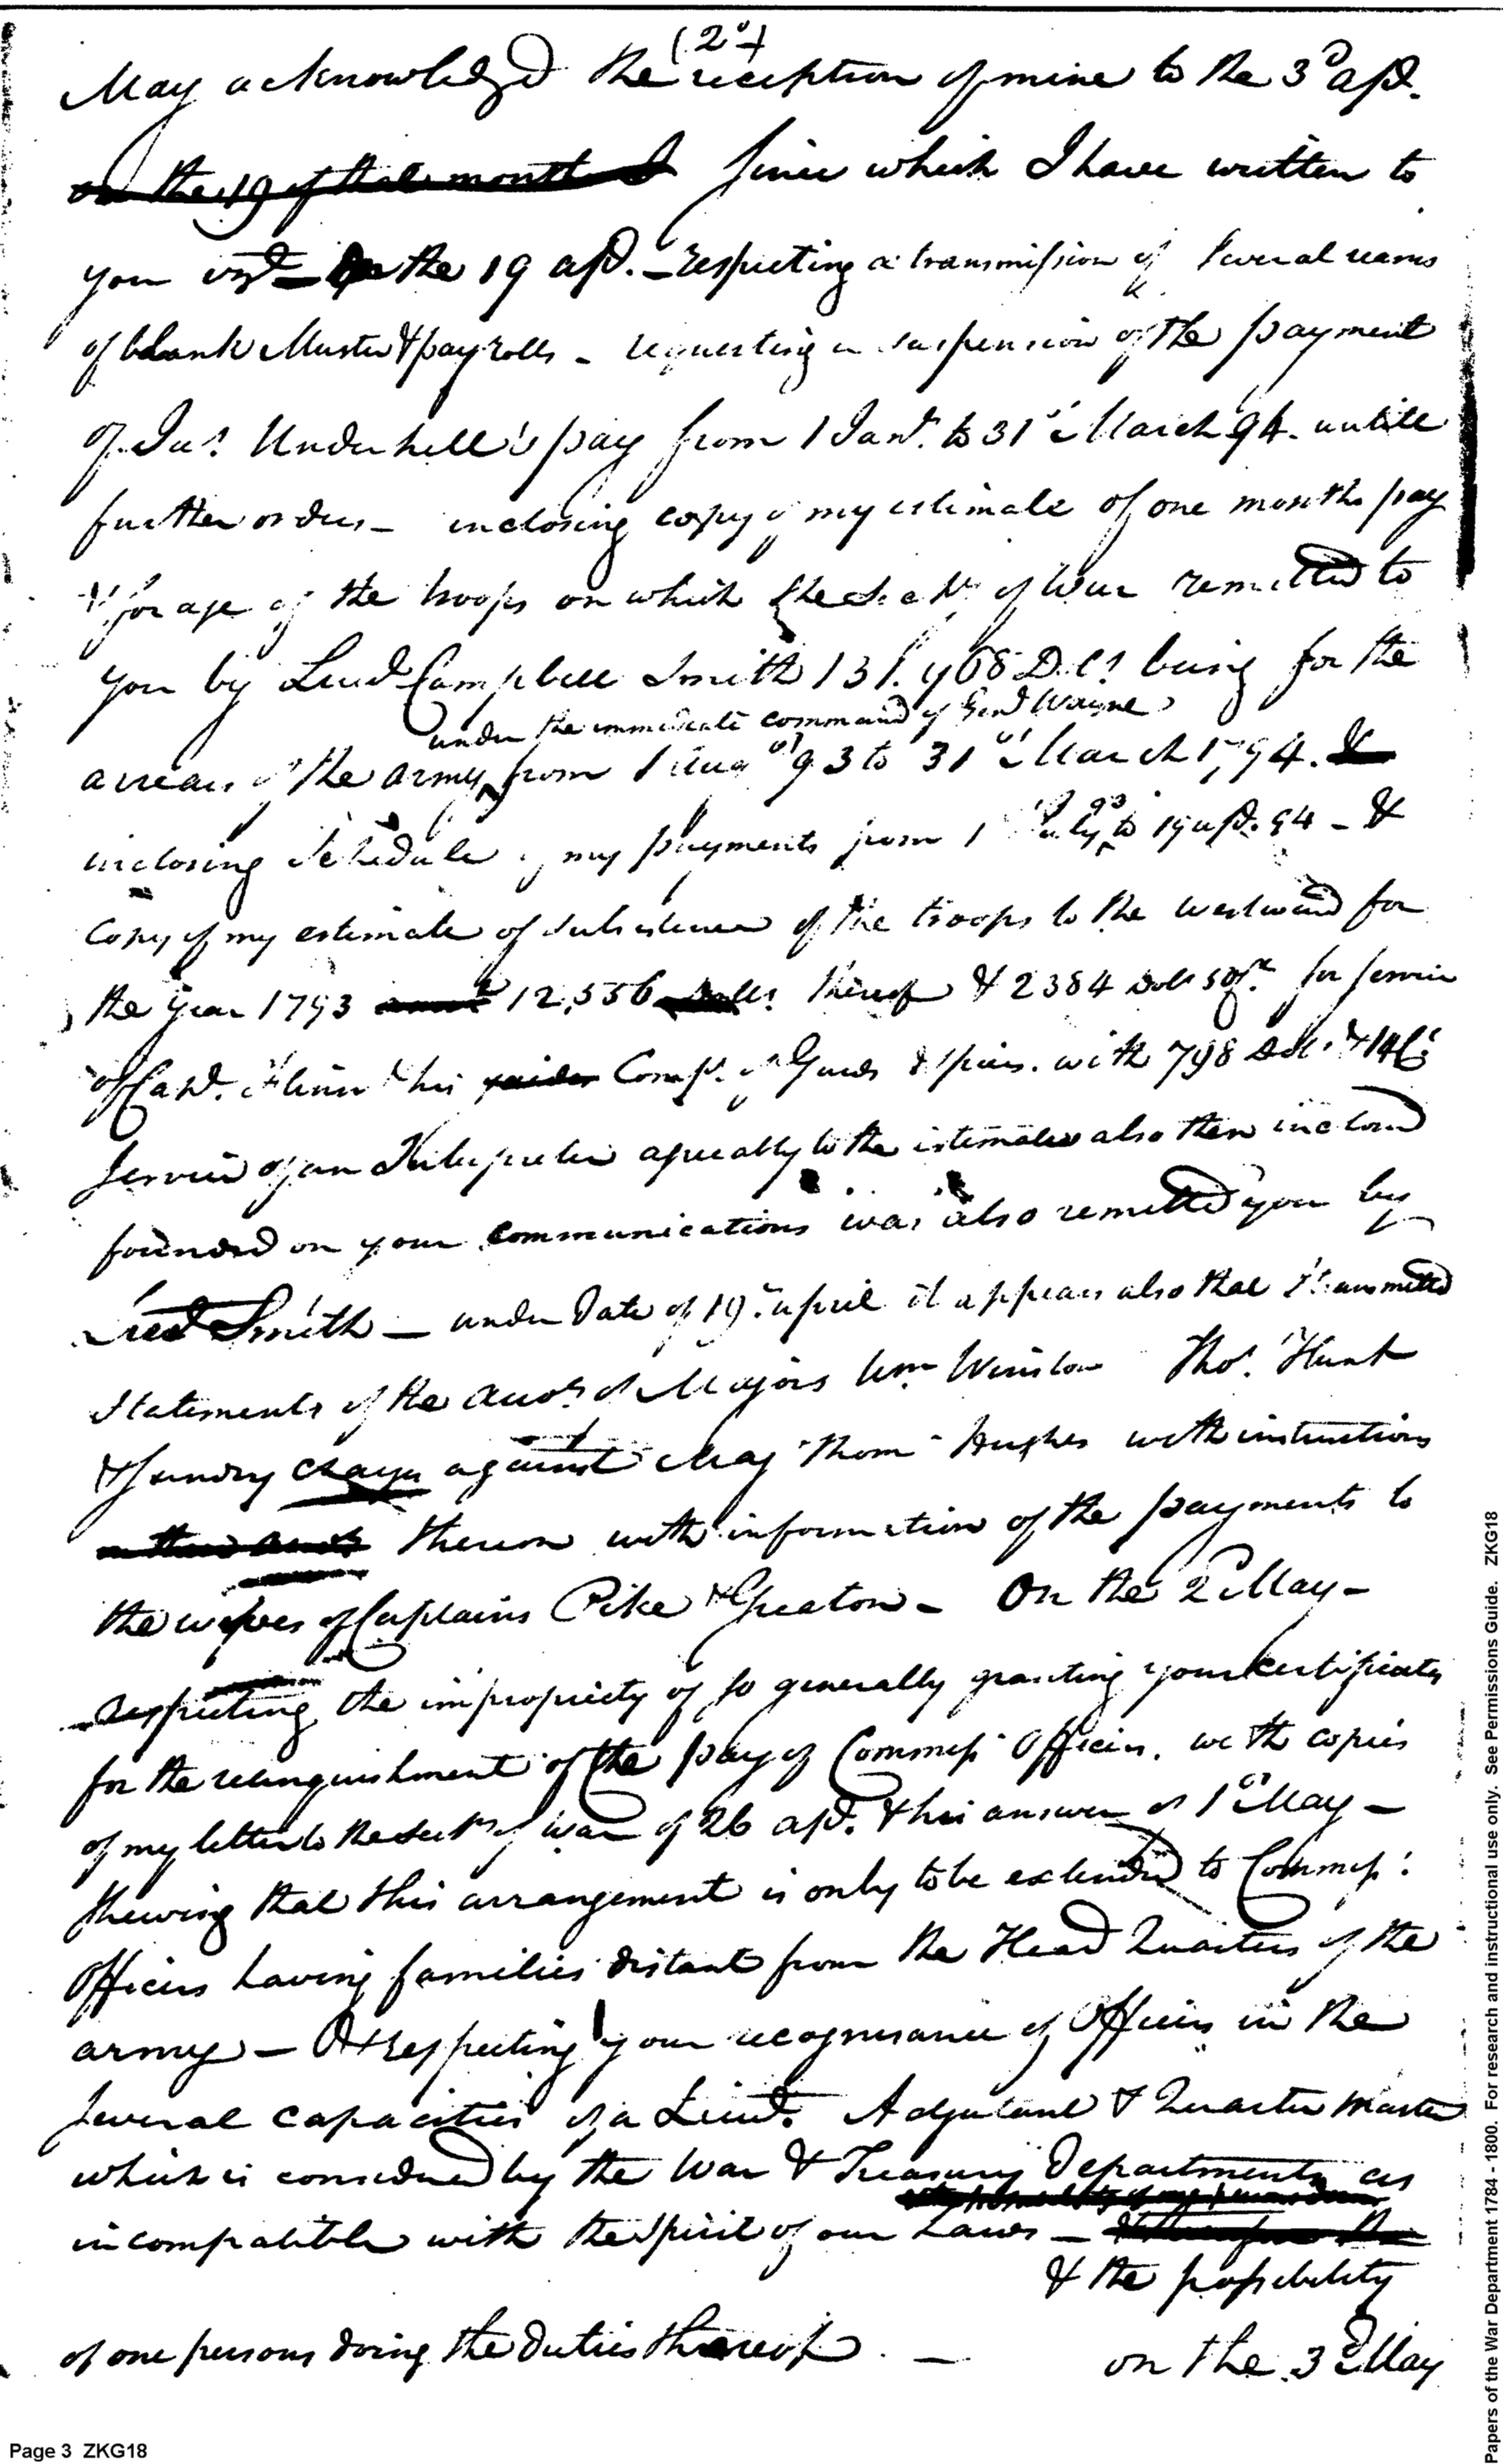 (2d)
May acknowledged the reception of mine to the 3d apl.
on the 19 of that month I since which I have written to
you vizt — on the 19 apl. — respecting a transmission of several reams
of blank Muster & pay rolls - requesting a suspension of the payment
of Jas. Underhill's pay from 1 Jany. to 31st March 94. untill
further orders - inclosing copy of my estimate of one months pay
& forage of the troops on which the Secty of War remitted to
you by Lieut Campbell Smith 131.908 D.Cs. being for the
under the immediate command of Genl Wayne
arrears of the army from 1 Aug 93 to 31st March 1794. &
inclosing Schedule of my payments from 1 July 93 to 19 apl. 94 - &
Copy of my estimate of subsistence of the troops to the westward for
the year 1793 amot 12,556 Dolls. thereof & 2384 Dolls 50 for service
of Capt. Flinn & his Compy. of Guides & spies. with 798 Dol. & 14 Cs
service of an Interpreter agreeably to the estimates also then inclosed
founded on your communications was also remitted you by
Lieut Smith — under Date of 19. april it appears also that I transmitted
Statements of the Accots. of Majors Wm Winslow Thos. Hunt
& sundry against Maj Thom Hughes with instructions
on their accots thereon with information of the payments to
the wifes of Captains Pike & Greaton - On the 2d May -
respecting the impropriety of so generally granting your Certificates
for the relinquishment of the pay of Commiss Officers. with copies
of my letter to the Secty of War of 26 apl. & his answer of 1st May -
shewing that this arrangement is only to be extended to Commiss:
Officers having families distant from the Head Quarters of the
army — & respecting your recognisance of Officers in the
several capacities of a Lieut. Adjutant & Quarter Master
which is considered by the War & Treasury Departments as
incompatible with the spirit of our Laws —
& the possibility
of one persons doing the duties thereof. — on the 3d May
Page 3 ZKG18
Papers of the War Department 1784 - 1800. For research and instructional use only. See Permissions Guide. ZKG18